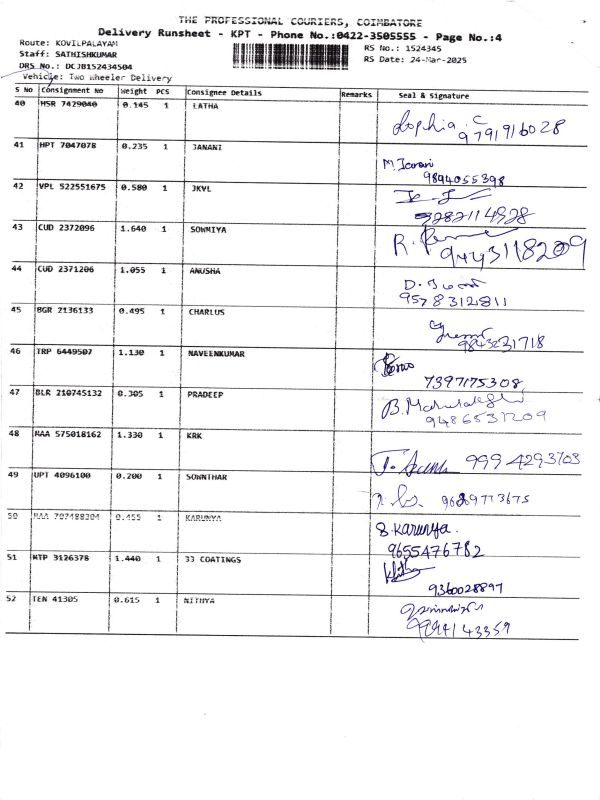 THE PROFESSIONAL COURIERS, COIMBATORE
Delivery Runsheet - KPT - Phone No.:0422-3505555 - Page No.:4
Route: KOVILPALAYAM
RS No.: 1524345
Staff: SATHISHKUMAR
RS Date: 24-Mar-2025
DRS No.: DCJB152434504
Vehicle: Two Wheeler Delivery
S No Consignment No Weight PCS Consignee Details Remarks Seal & Signature
40 MSR 7429040 0.145 1 LATHA
Sophia. C
9791916028
41 HPT 7047078 0.235 1 JANANI
M. Janani
9894055398
42 VPL 522551675 0.580 1 JKVL
43 CUD 2372096 1.640 1 SOWMIYA
R.
9443118209
44 CUD 2371206 1.055 1 ANUSHA
9578312811
45 BGR 2136133 0.495 1 CHARLUS
9843231718
46 TRP 6449507 1.130 1 NAVEENKUMAR
7397175308
47 BLR 210745132 0.305 1 PRADEEP
9486531209
48 MAA 575018162 1.330 1 KRK
9994293703
49 UPT 4096100 0.200 1 SOWNTHAR
50 MAA 707488304 0.455 1 KARUNYA
S. Karunya.
9655476782
51 MTP 3126378 1.440 1 33 COATINGS
9360028897
52 TEN 41305 0.615 1 NITHYA